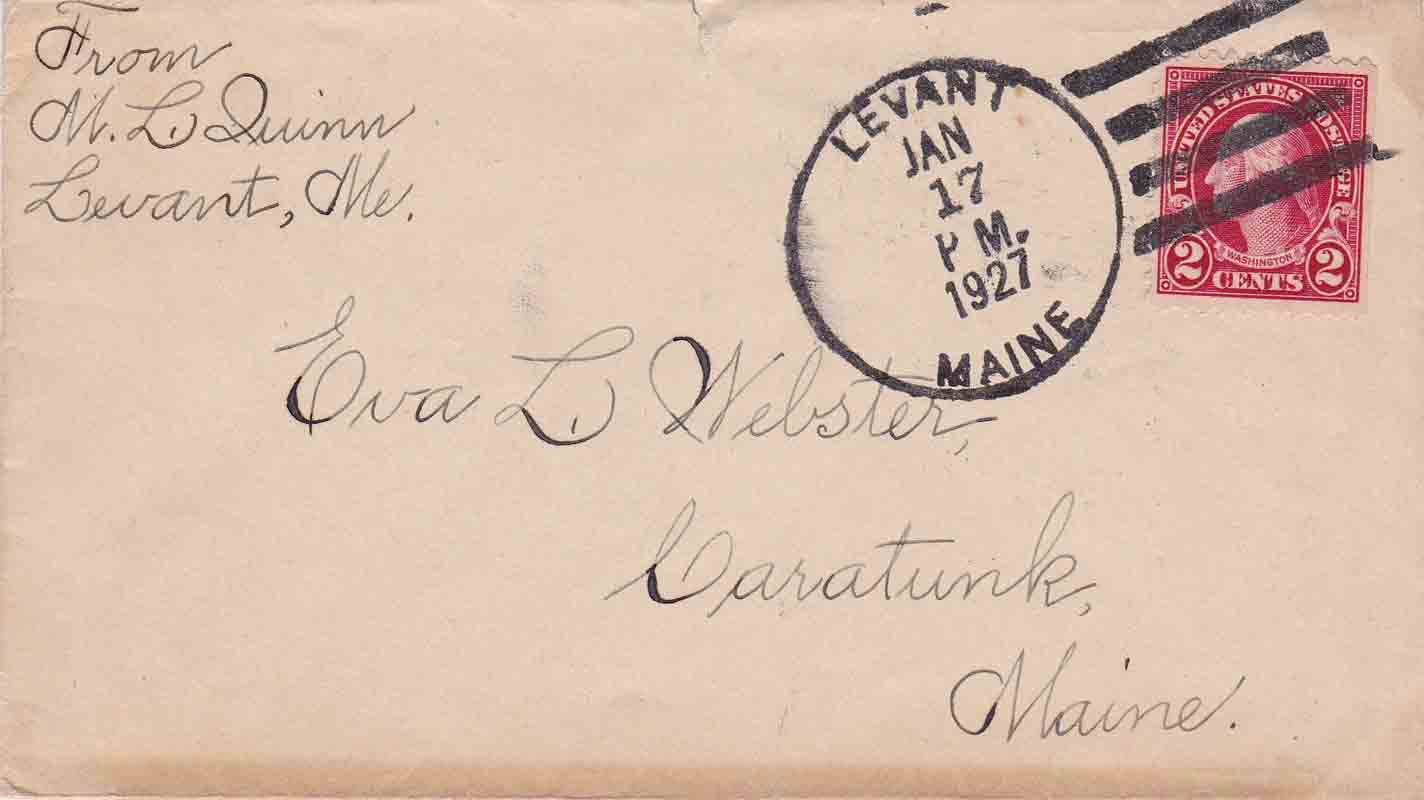 From
M. L. Quinn
Levant, Me.
LEVANT
JAN
17
P M.
1927
MAINE
UNITED STATES POSTAGE
WASHINGTON
2 CENTS 2
Eva L. Webster,
Caratunk,
Maine.